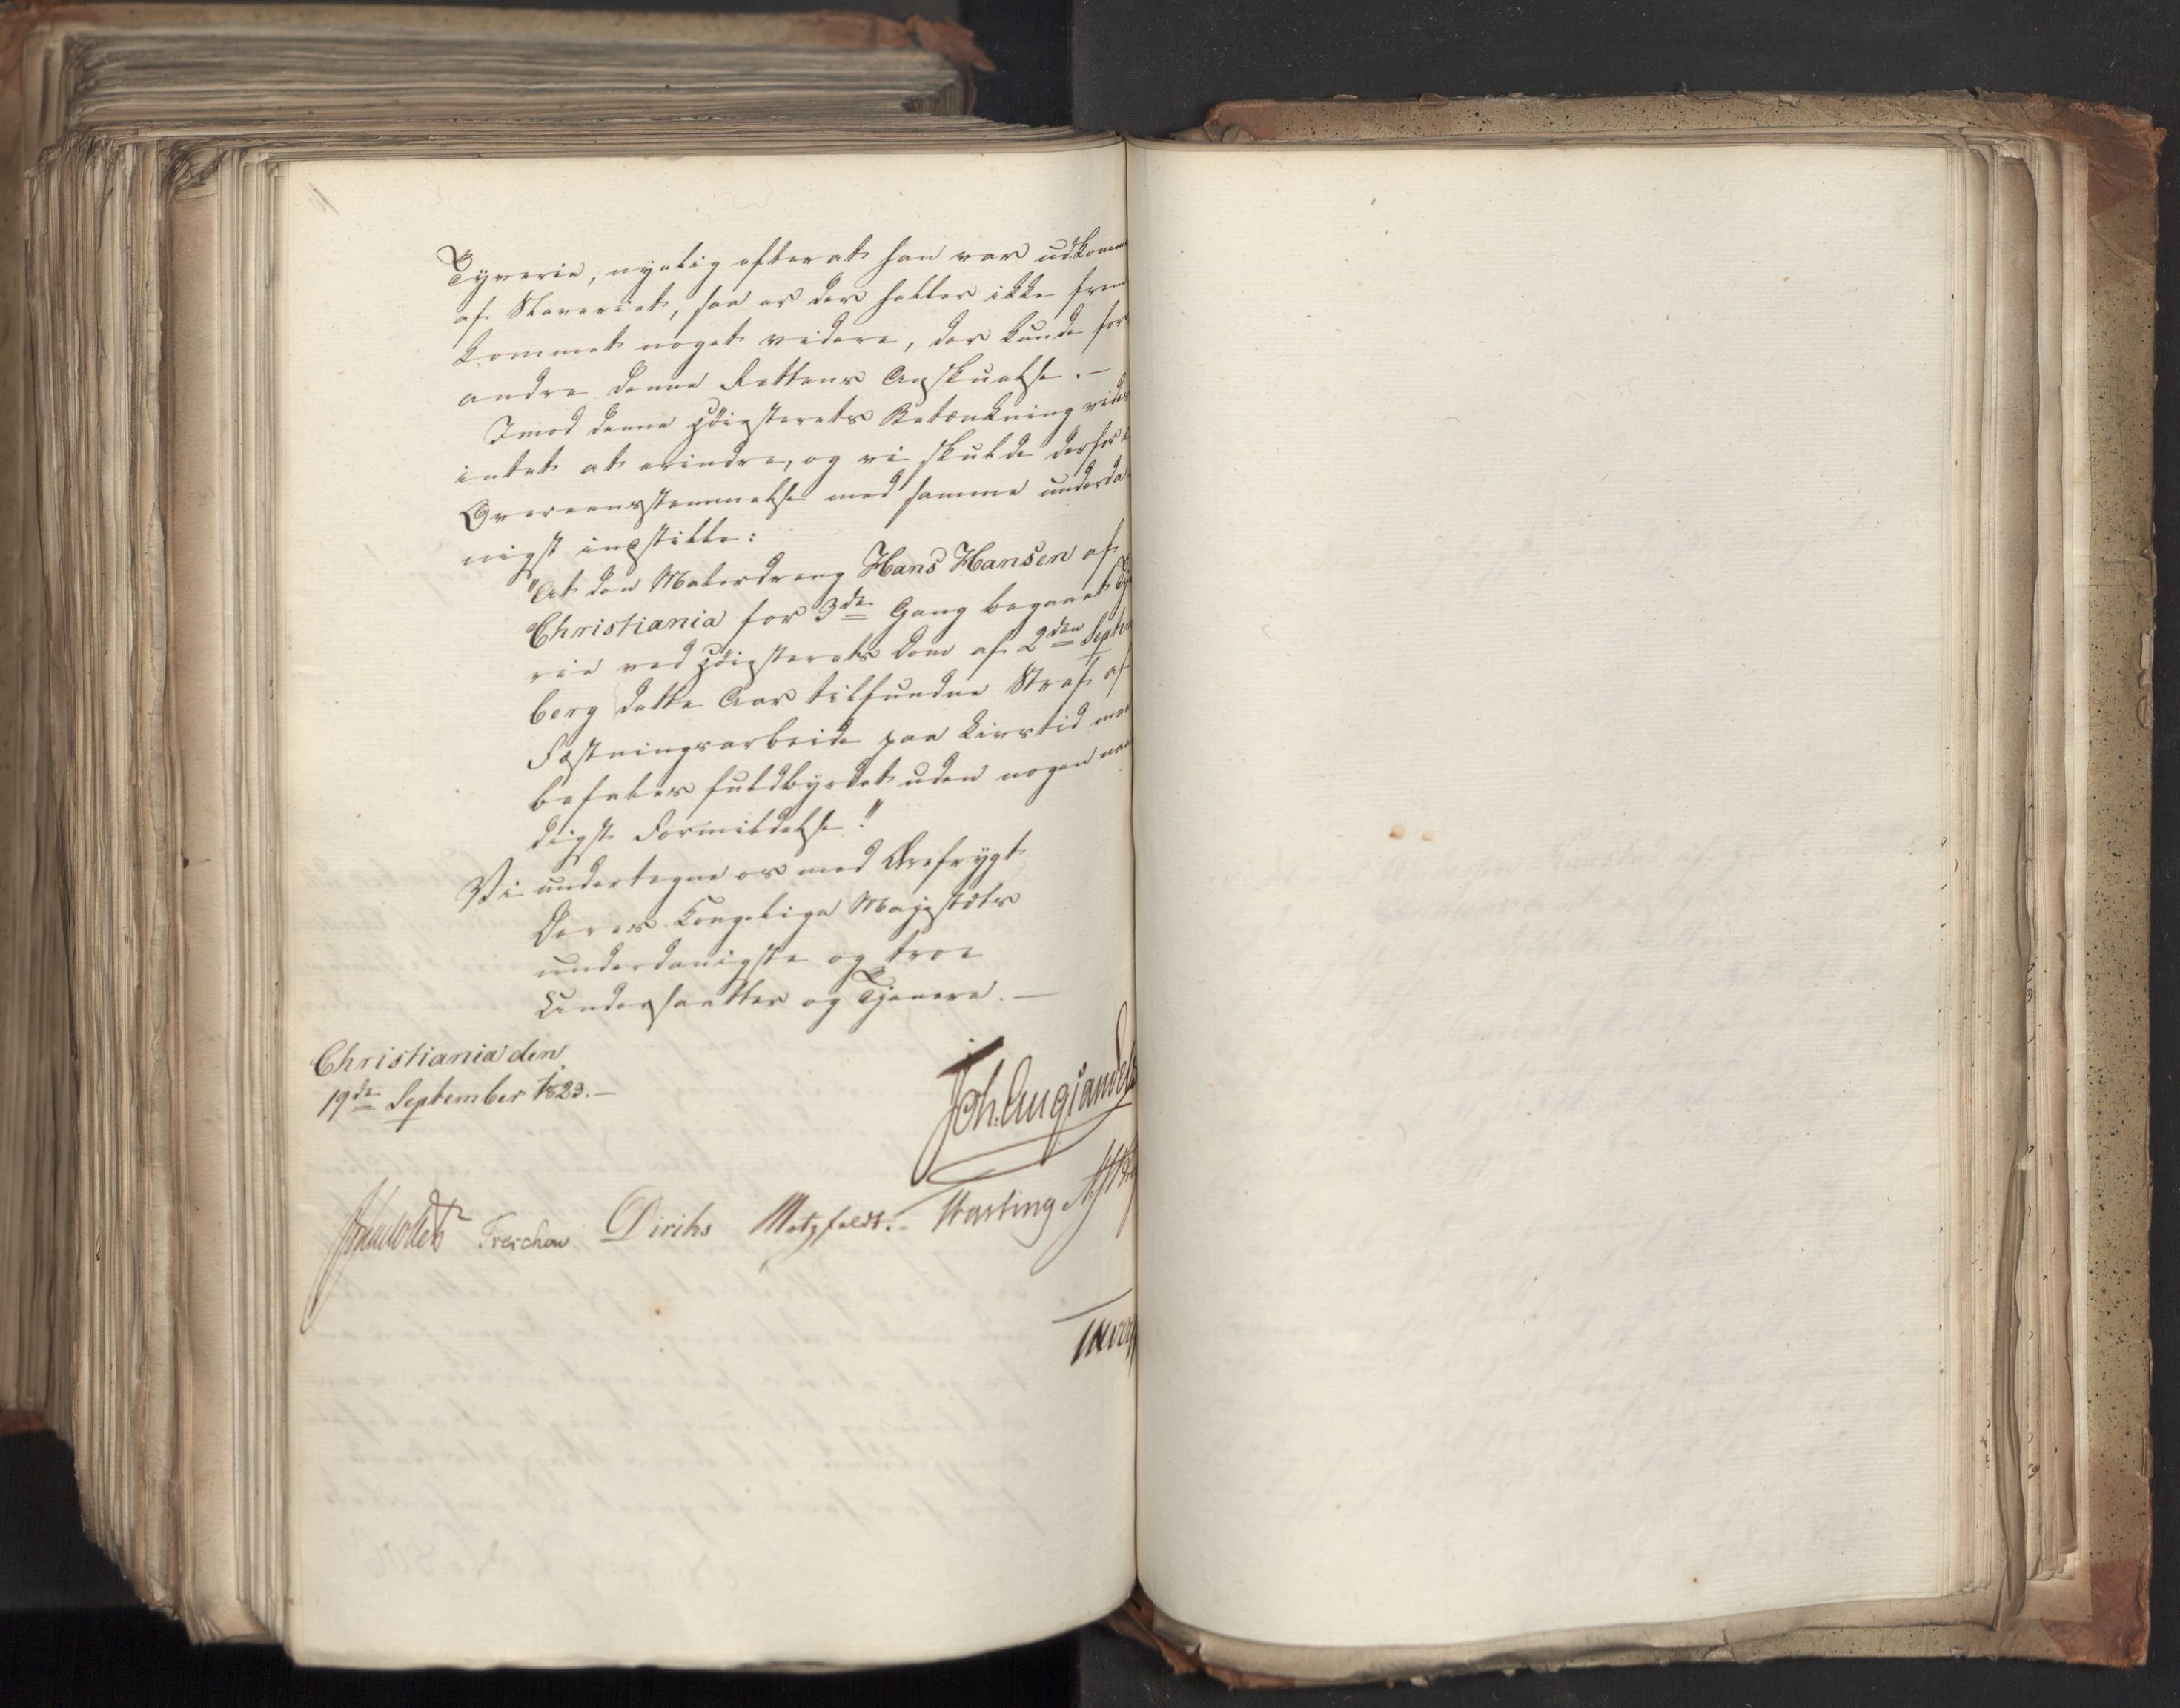 Tyverie, nyelig efterat han var udkom
af Slaveriet, saa er der heller ikke frem
kommet noget videre, der kunde for
andre denne Rettens Anskuelse. –
Imod denne Høiesterets Betænkning vides
intet at erindre, og vi skulde derfor i
Overeensstemmelse med samme underda
nigst indstille:
"At den Malerdreng Hans Hansen af
Christiania for 3de Gang begaaet Ty
rie ved Høiesterets Dom af 2den Septem
berg dette Aar tilfundne Straf af
Fæstningsarbeide paa Livstid
befales fuldbyrdet uden nogen naa
digst Formildelse."
Vi undertegne os med Ærefrygt
Deres Kongelige Majestæts
underdanigste og troe
Undersaatter og Tjenere. –
Christiania den
19de September 1823. –
Joh. Aug Sandels
Treschow Diriks Motzfeldt. –